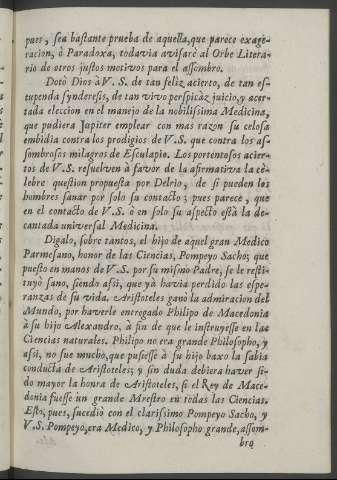 pues, sea bastante prueba de aquella, que parece exage-
racion, ò Paradoxa, todavia avisarè al Orbe Litera-
rio de otros justos motivos para el assombro.
Dotò Dios à V. S. de tan feliz acierto, de tan es-
tupenda synderesis, de tan vivo perspicàz juicio, y acer-
tada eleccion en el manejo de la nobilissima Medicina,
que pudiera Jupiter emplear con mas razon su celosa
embidia contra los prodigios de V.S. que contra los as-
sombrosos milagros de Esculapio. Los portentosos acier-
tos de V.S. resuelven à favor de la afirmativa la cè-
lebre question propuesta por Delrio, de si pueden los
hombres sanar por solo su contacto; pues parece, que
en el contacto de V.S. ò en solo su aspecto està la de-
cantada universal Medicina.
Digalo, sobre tantos, el hijo de aquel gran Medico
Parmesano, honor de las Ciencias, Pompeyo Sacho; que
puesto en manos de V.S. por su mismo Padre, se le resti-
tuyò sano, siendo assi, que yà havia perdido las espe-
ranzas de su vida. Aristoteles ganò la admiracion del
Mundo, por haverle entregado Philipo de Macedonia
à su hijo Alexandro, à fin de que le instruyesse en las
Ciencias naturales. Philipo no era grande Philosopho, y
assi, no sue mucho, que pusiesse à su hijo baxo la sabia
conducta de Aristoteles; y sin duda debiera haver si-
do mayor la honra de Aristoteles, si el Rey de Mace-
donia fuesse un grande Mrestro en todas las Ciencias.
Esto, pues, sucediò con el clarissimo Pompeyo Sacho, y
V.S. Pompeyo, era Medico, y Philosopho grande, assom-
bro